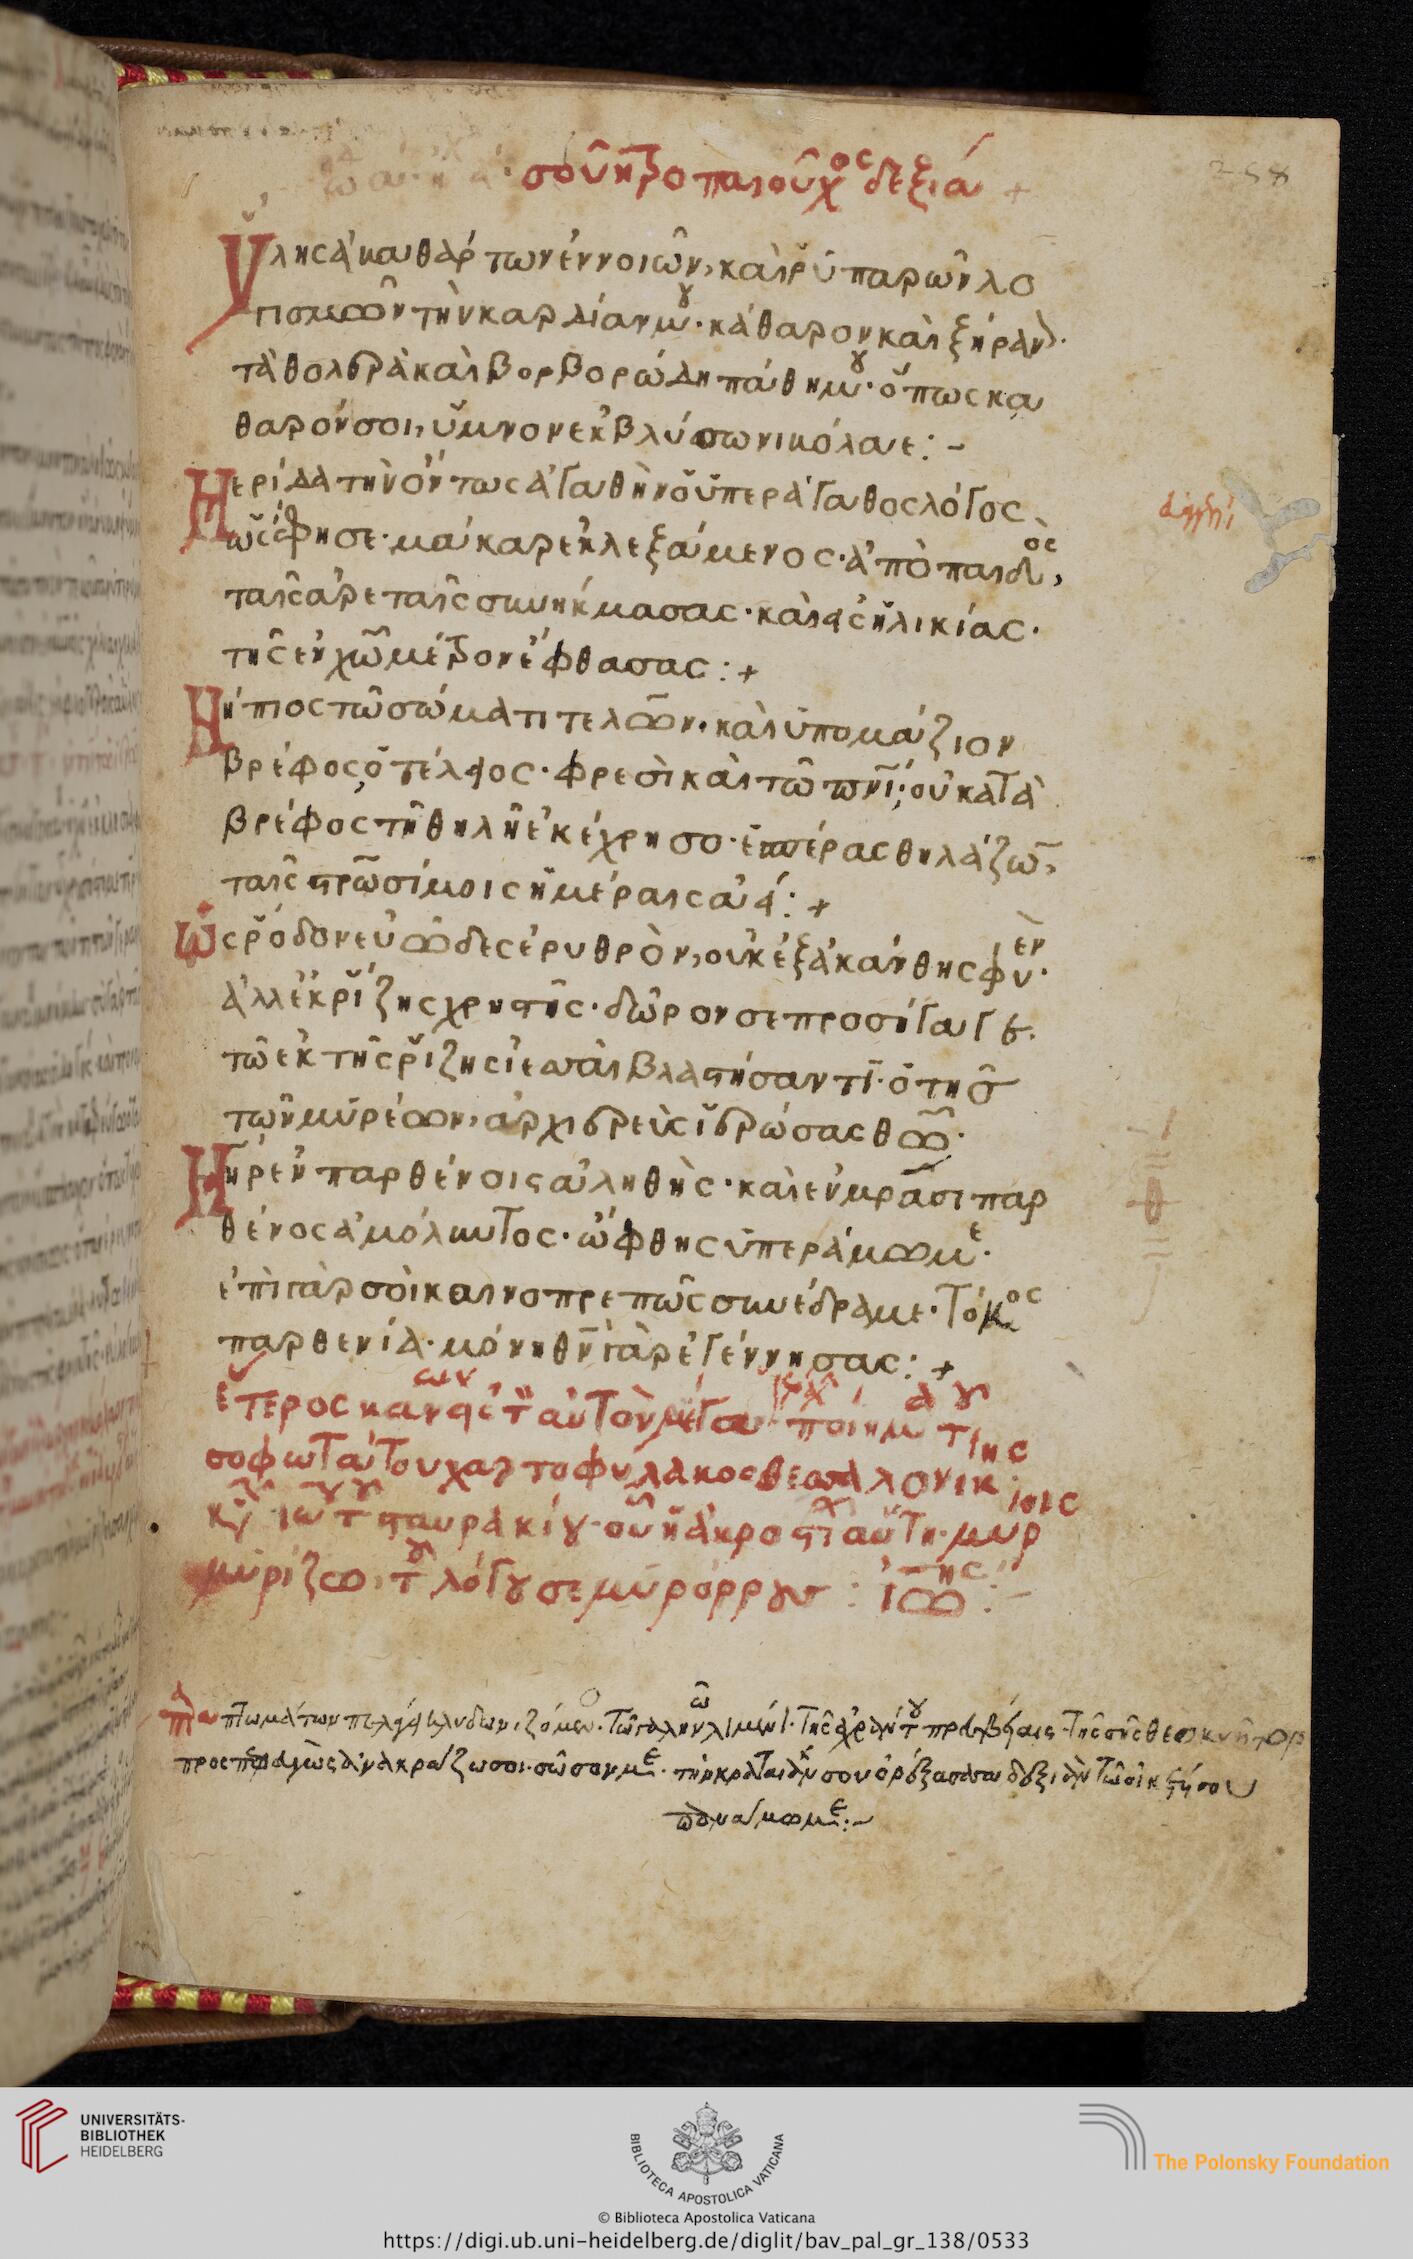 σοῦ ἡ τροπαιοῦχος δεξιά +
258
Ὕλης ἀκαθάρτων ἐννοιῶν, καὶ ῥυπαρῶν λο
γισμῶν τὴν καρδίαν μου· κάθαρον καὶ ξήρανον·
τὰ θολερὰ καὶ βορβορώδη πάθη μου· ὅπως κα
θαρόν σοι, ὕμνον ἐκβλύσω νικόλαε: –
Μερίδα τὴν ὄντως ἀγαθὴν οὗ ὑπεράγαθος λόγος
ὡς ἔφησε· μάκαρ ἐκλεξάμενος· ἀπὸ παιδὸς,
ταῖς ἀρεταῖς συνήκμασας· καὶ τῆς ἡλικίας·
τῆς ἐν χῶ μέτρον ἔφθασας: +
Νήπιος τῶ σώματι τελῶν· καὶ ὑπομάζιον
βρέφος, ὁ τέλειος· φρεσὶ καὶ τῶ πνι; οὐ κατὰ
βρέφος τῆ θηλῆ ἐκέχρησο· ἑσπέρας θηλάζων,
ταῖς νηστίμοις ἡμέραις αεί: +
Ὡς ῥόδον εὐῶδες ἐρυθρὸν, οὐκ ἐξ ἀκάνθης φυὲν·
ἀλλ' ἐκ ῥίζης χρηστῆς· δῶρόν σε προσήγαγε·
τῶ ἐκ τῆς ῥίζης ἰεσσαὶ βλαστήσαντι· ὁ τῆς
τῶν μυρέων, ἀρχιερεὺς ἱερώσας θῶ·
Μήτηρ ἐν παρθένοις ἀληθὴς· καὶ ἐν μράσι παρ
θένος ἀμόλυντος· ὤφθης ὑπεράμωμε·
ἐπὶ γὰρ σοὶ καινοπρεπῶς συνέδραμε· τόκος
παρθενία· μόνη θν γὰρ ἐγέννησας: +
ἀρχὴ
ἕτερος κανὼν εἰς τὸν αὐτὸν μέγαν ποίημα τοῦ
σοφωτάτου χαρτοφύλακος θεσσαλονίκης
κυ ιω του σταυρακίου· οὗ ἡ ἀκροστιχὶς αὕτη· μύροις
μυρίζω, τοῦ λόγου σε μυρόρρους: ἰωαννης: –
πταισμάτων πελάγει κλυδωνιζόμενος· τῶ γαληνῶ λιμένι· τῆς ἀχράντου πρεσβείας· τῆς σῆς θεοκυῆτορ
προσπεφευγὼς ἀνακράζω σοι· σῶσόν με· τὴν κραταιάν σου ὀρέξασα δεξιὰν τῶ οἰκέτη σου
πάναμωμε: –
UNIVERSITÄTS-
BIBLIOTHEK
HEIDELBERG
BIBLIOTECA APOSTOLICA VATICANA
The Polonsky Foundation
© Biblioteca Apostolica Vaticana
https://digi.ub.uni-heidelberg.de/diglit/bav_pal_gr_138/0533